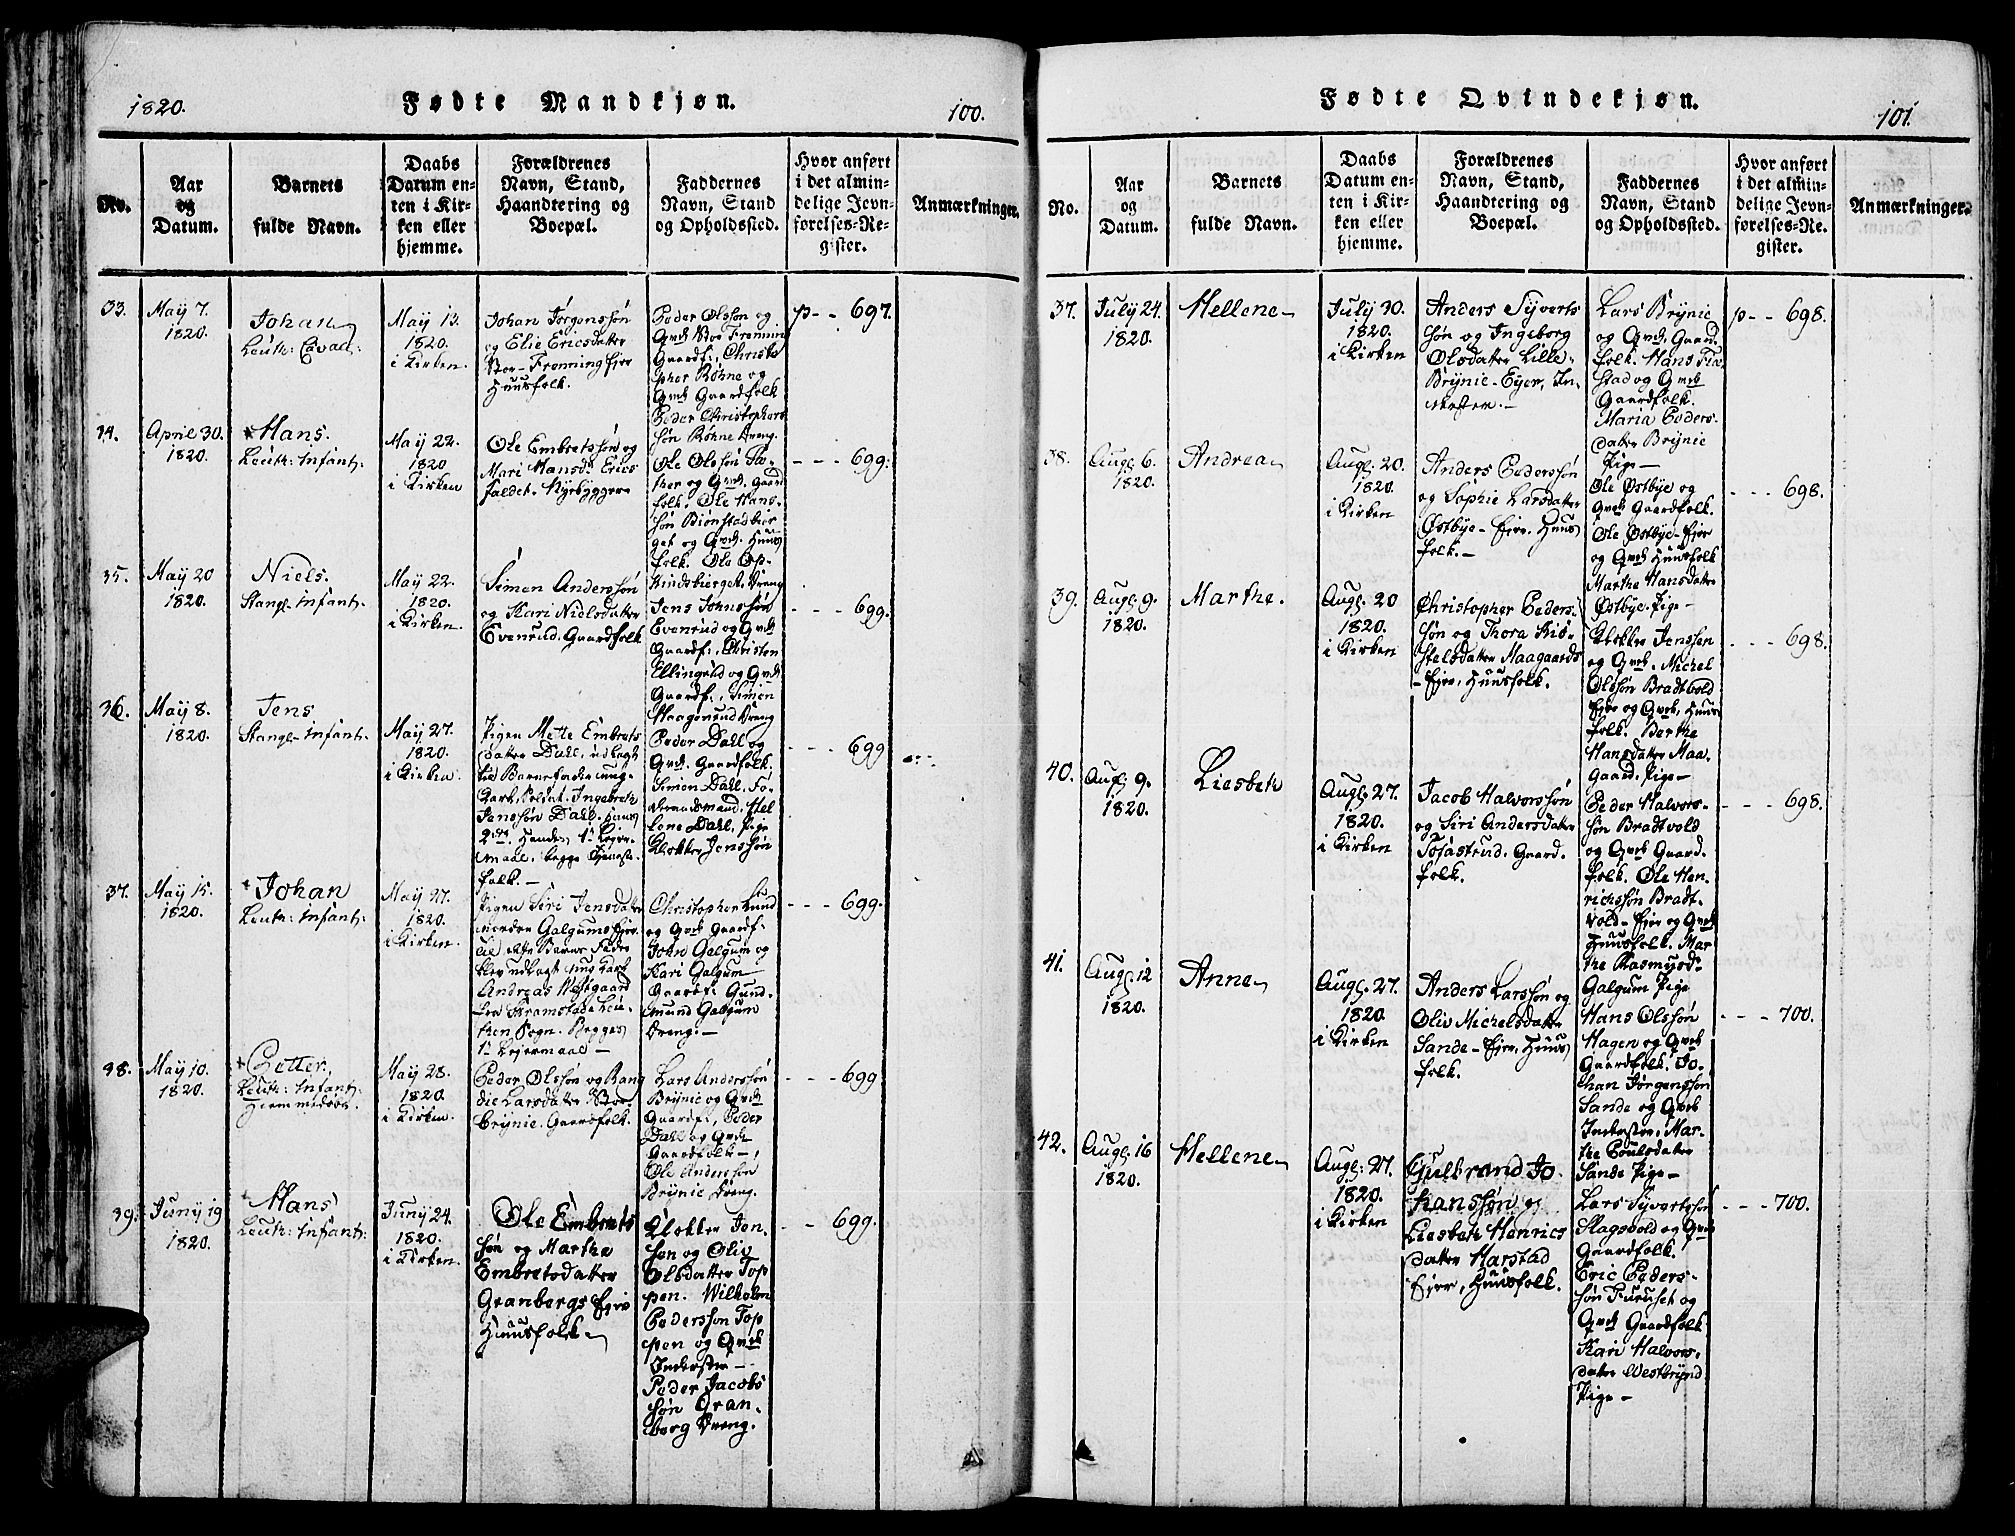 1820.
Fødte Mandkjøn.
100.
No.
Aar
og
Datum.
Barnets
fulde Navn.
Daabs
Datum en-
ten i Kir-
ken eller
hjemme.
Forældrenes
Navn, Stand,
Haandtering og
Boepæl.
Faddernes
Navn, Stand
og Opholdssted.
Hvor anført
i det almin-
delige Jevn-
førelses-Re-
gister.
Anmærkninger.
33.
May 7.
1820.
Johan
May 13.
1820.
i Kirken.
Johan Jørgenssøn
og Elie Ericsdatter
Stor-Frønning Ejer
Huusfolk.
Peder Olssøn og
Gaardf:, Christo
pher Røhne og
Qvde Gaardfolk
Peder Christophers
søn Røhne Dreng.
p - - 697.
34.
April 30.
1820.
Hans.
Leuth: Infant:
May 22.
1820
i Kirken
Ole Embretssøn og
Mari Hansdr Erics
faldet. Nyebyggere
Ole Olssøn
og Qvde. Gaard
folk. Ole Hans-
søn Biønstadbier
get og Qvde. Huus
folk. Ole Op-
kindsbierget. Dreng
- - - 699.
35.
May 20
1820.
Niels.
Stangl- Infant:
May 22.
1820.
i Kirken.
Simen Anderssøn
og Kari Nielsdatter
Evenrud. Gaardfolk
Jens Johnssøn
Evenrud og Qvde
Gaardf:, Christen
Ellingrud og Qvde
Gaardf:, Simen
Haagenrud Dreng
- - - 699.
36.
May 8.
1820.
Jens
Stangl- Infant:
May 27.
1820.
i Kirken.
Pigen Mette Embrets
datter Dahl, udlagt
til Barnefader ung-
karl, Soldat. Ingebreth
Jenssøn Dahl. Hans
2den. Hendes 1te Leier-
maal, begge Tieneste
folk.-
Peder Dahl og
Qvde. Gaardfolk.
Simen Dahl. Fo-
rmandsmand. Hel
lene Dahl, Pige
Klokker Jenssøn
- - - 699
37.
May 15.
1820.
Johan
Leuth: Infant:
May 27.
1820.
i Kirken.
Pigen Siri Jensdatter
Galgums Ejer.
blev udlagt ung Karl
Andreas Westgaard
fra Kramstad Leu-
then Sogn. Begges
1te Lejermaal -
Christopher Lund
og Qvde Gaardf.
John Galgum og
Kari Galgum
Gaardf: Gund-
mund Galgum
Dreng. -
- - - 699.
38.
May 10.
1820.
Petter,
Leuth: Infant
Hiemmedøbt.
May 28.
1820.
i Kirken.
Peder Olssøn og Rang
die Larsdatter Stor
Brynie. Gaardfolk.
Lars Anderssøn
Brynie og Qvde
Gaardf:, Peder
Dahl og Qvde
Gaardfolk -,
Ole Anderssøn
Brynie Dreng.
- - - 699
39.
Juny 19
1820.
Hans
Leuth: Infant:
Juny 24.
1820.
i Kirken.
Ole Embrets
søn og Martha
Embretsdatter
Granbergs Ejer
Huusfolk
Klokker Jen-
sen og Oliv
Olsdatter Top
pen. Wilhelm
Pedersson Top
pen og Qvde
Inderster -
Peder Jacobs
søn Gran-
berg Dreng.
- - 699.
Fødte Qvindekjøn.
101.
No.
Aar
og
Datum.
Barnets
fulde Navn.
Daabs
Datum en-
ten i Kir-
ken eller
hjemme.
Forældrenes
Navn, Stand,
Haandtering og
Boepæl.
Faddernes
Navn, Stand
og Opholdssted.
Hvor anført
i det almin-
delige Jevn-
førelses-Re-
gister.
Anmærkninger.
37.
July 24.
1820.
Hellene
July 30.
1820.
i Kirken
Anders Syverts
søn og Ingeborg
Olsdatter Lille-
Brynie-Eyer, In-
derster. -
Lars Brynie
og Qvde. Gaard
folk. Hans Fla-
stad og Qvde
Gaardfolk.
Maria Peders-
datter Brynie
Pige -
p - - 698.
38.
Augl. 6.
1820.
Andrea
Augl. 20.
1820.
i Kirken
Anders Pederssøn
og Sophie Larsdatter
Østbye - Ejer. Huus
folk. -
Ole Østbye og
Qvde Gaardfolk.
Ole Østbye-Ejer
og Qvde Huusfolk
Marthe Hansdatter
Østbye. Pige -
- - - 698.
39.
Augl. 9.
1820.
Marthe.
Augl. 20
1820.
i Kirken
Christopher Peders-
søn og Thora Kri-
stelsdatter Maagaards
- Ejer, Huusfolk.
Klokker Jenssen
og Qvde. Michel
Olssøn Bradtvold
Ejer og Qvde, Huus
folk. Berthe
Hansdatter Maa-
gaard, Pige -
- - - 698.
40.
Augl. 9.
1820.
Liesbeth
Augl. 27.
1820.
i Kirken
Jacob Halvorssøn
og Siri Andersdatter
Tojastrud. Gaard-
folk.
Peder Halvors-
søn Bradtvold
og Qvde Gaard-
folk. Ole Hen-
richssøn Bradt-
vold - Ejer og Qvde
Huusfolk. Mar-
the Rasmusdr
Galgum Pige
- - - 698.
41.
Augl. 12
1820.
Anne
Augl. 27.
1820
i Kirken
Anders Larssøn og
Oliv Michelsdatter
Sande - Ejer. Huus
folk.
Hans Olssøn
Hagen og Qvde
Gaardfolk. Jo-
han Jørgenssøn
Sande og Qvde
Inderster. Mar-
the Poulsdatter
Sande Pige -
- - - 700.
42.
Augl. 16
1820.
Hellene
Augl: 27.
1820.
i Kirken
Gulbrand Jo
hanssøn og
Liesbeth Henrics
datter Harstad
Ejer, Huusfolk.
Lars Syvertssøn
Slagsvold og Qvde
Gaardfolk.
Eric Peders-
søn Furuset og
Qvde Gaardfolk
Kari Halvors-
datter Westbrynd
Pige -
- - - 700.